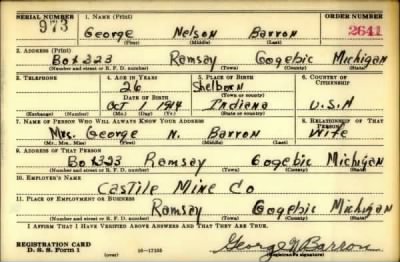 SERIAL NUMBER 1. NAME (Print) ORDER NUMBER
973 George Nelson Barron 2641
(First) (Middle) (Last)
2. ADDRESS (Print)
Box 223 Ramsay Gogebic Michigan
(Number and street or R. F. D. number) (Town) (County) (State)
3. TELEPHONE 4. AGE IN YEARS 5. PLACE OF BIRTH 6. COUNTRY OF CITIZENSHIP
26 Shelborn
DATE OF BIRTH (Town or county)
Oct 1 1914 Indiana U.S.A
(Exchange) (Number) (Mo.) (Day) (Yr.) (State or country)
7. NAME OF PERSON WHO WILL ALWAYS KNOW YOUR ADDRESS 8. RELATIONSHIP OF THAT PERSON
Mrs. George N. Barron Wife
(Mr., Mrs., Miss) (First) (Middle) (Last)
9. ADDRESS OF THAT PERSON
Box 323 Ramsay Gogebic Michigan
(Number and street or R. F. D. number) (Town) (County) (State)
10. EMPLOYER'S NAME
Castile Mine Co
11. PLACE OF EMPLOYMENT OR BUSINESS
Ramsay Gogebic Michigan
(Number and street or R. F. D. number) (Town) (County) (State)
I AFFIRM THAT I HAVE VERIFIED ABOVE ANSWERS AND THAT THEY ARE TRUE.
REGISTRATION CARD George N Barron
D. S. S. Form 1 (over) 16—17105 (Registrant's signature)